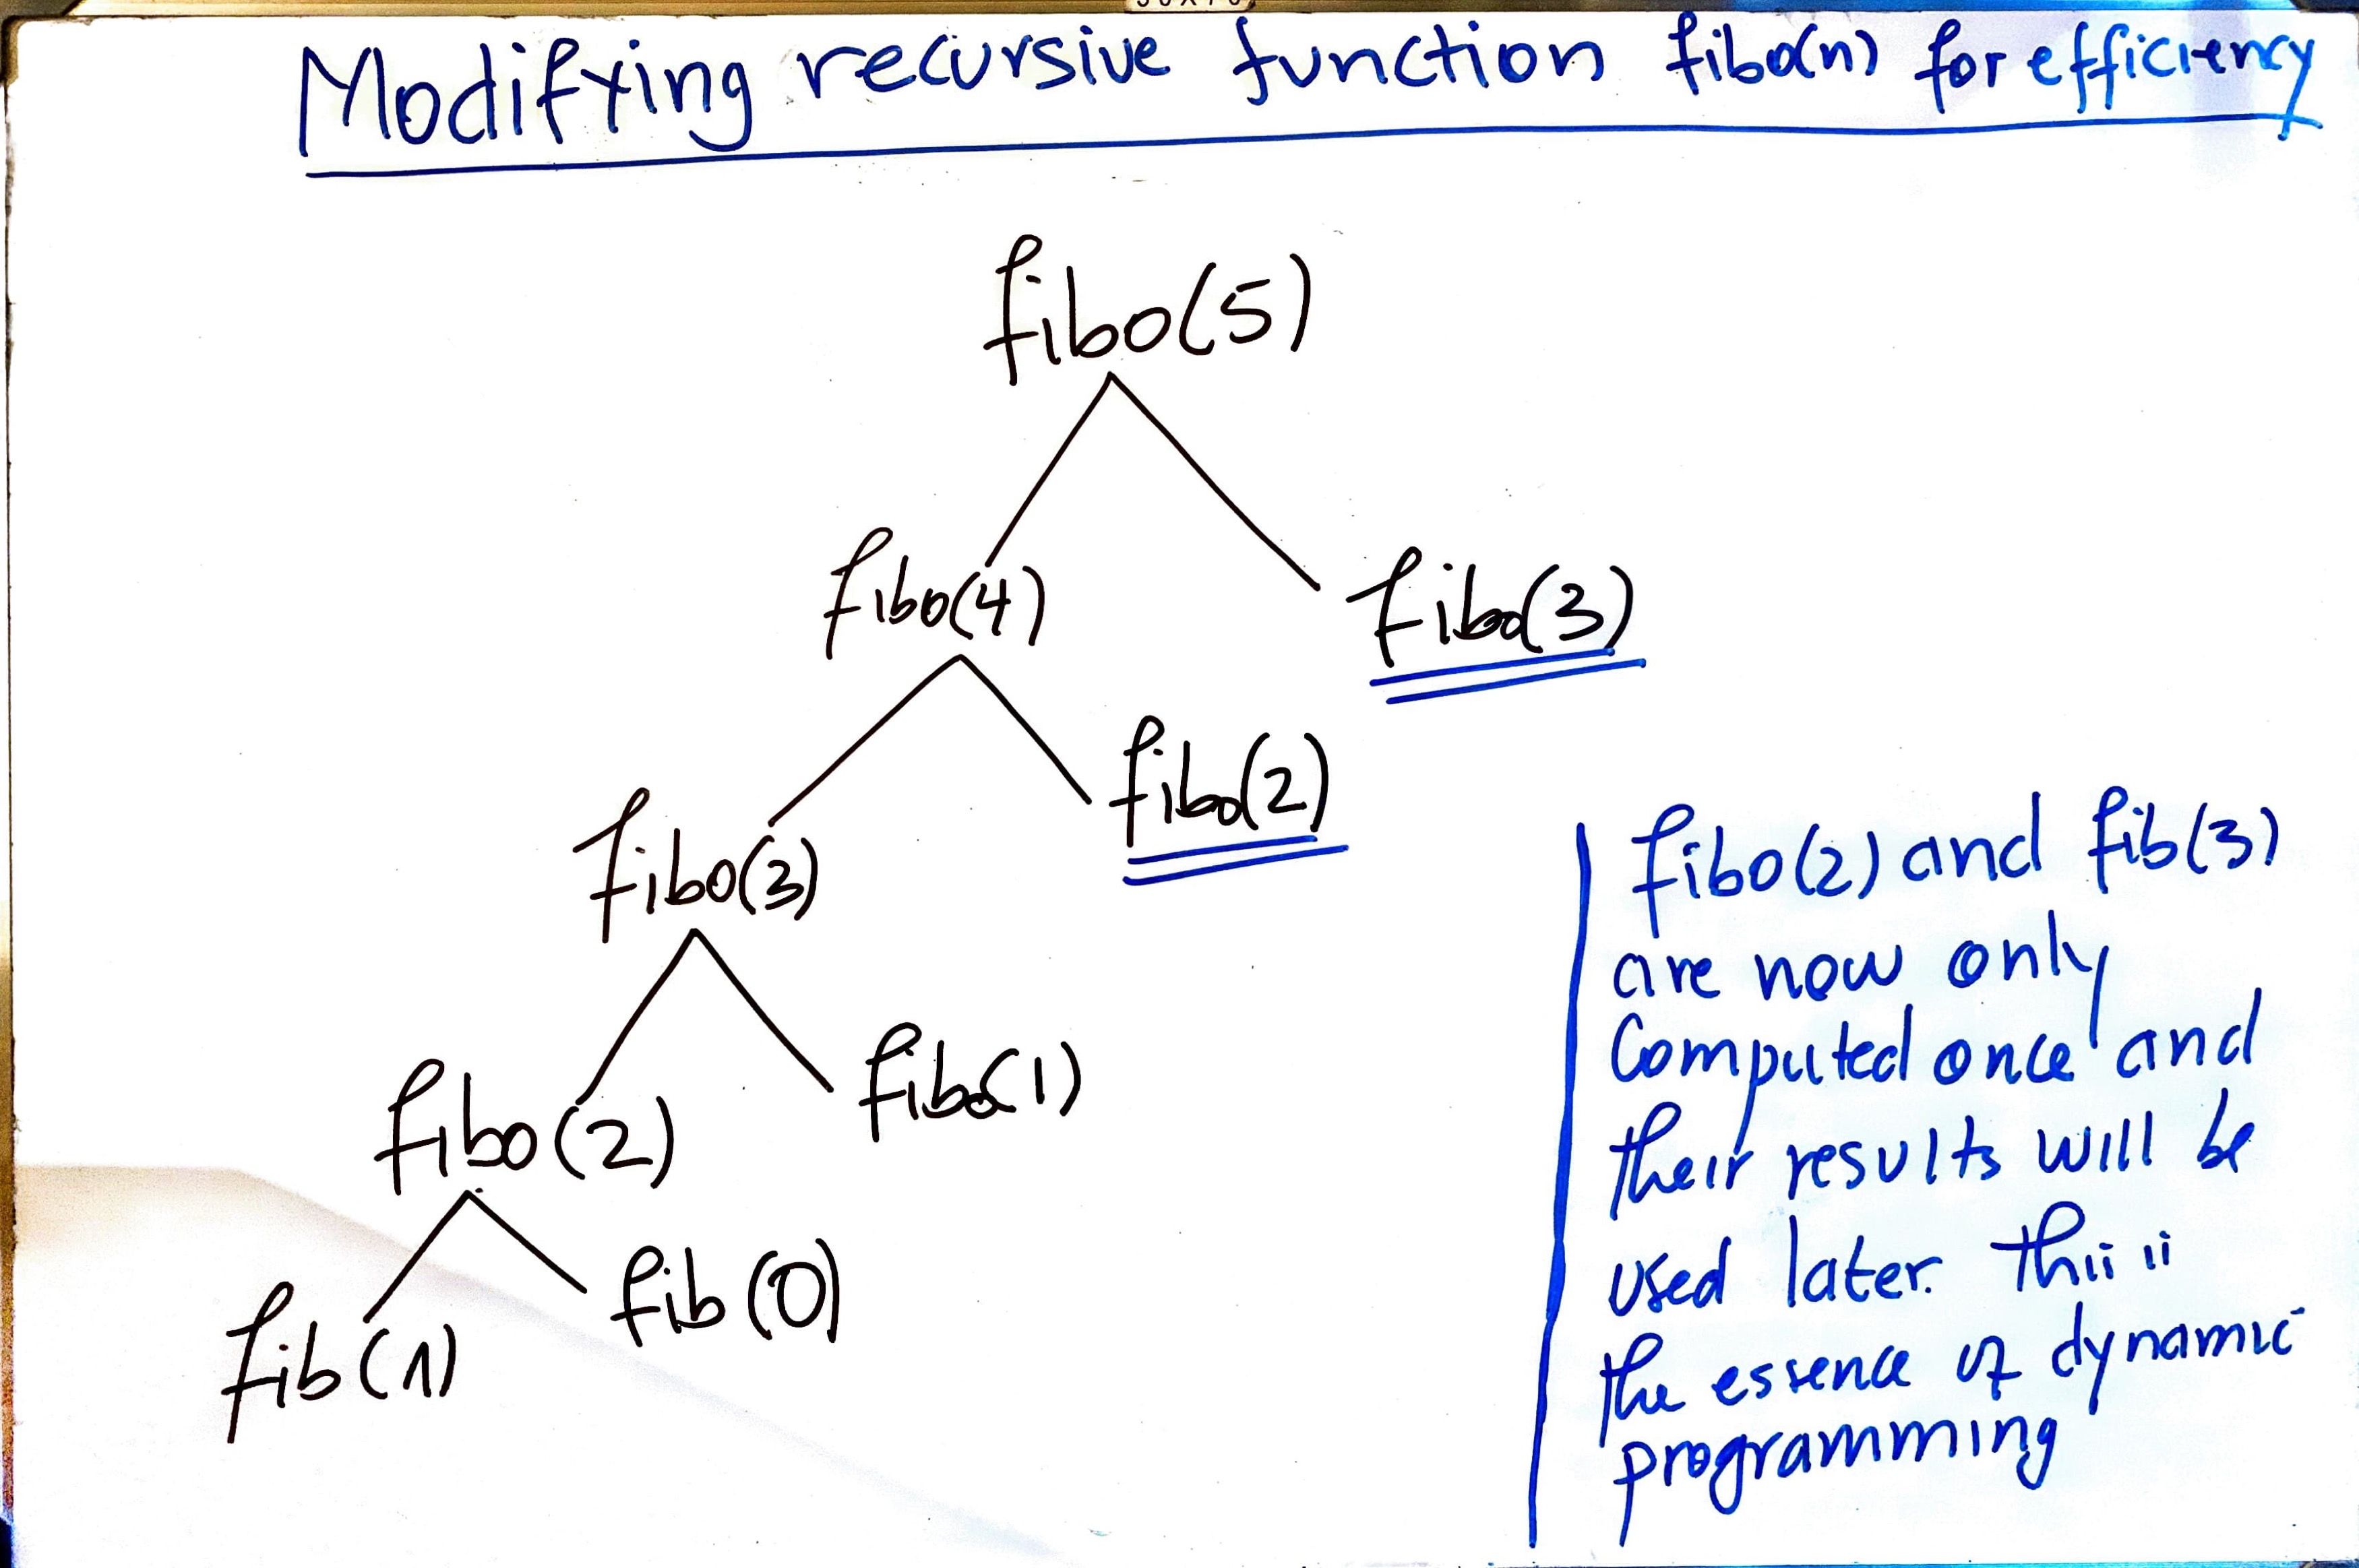 Modifying recursive function fibo(n) for efficiency
fibo(5)
fibo(4)
fibo(3)
fibo(3)
fibo(2)
fibo(2)
fibo(1)
fib(1)
fib(0)
fibo(2) and fib(3)
are now only
Computed once and
their results will be
used later. This is
the essence of dynamic
programming